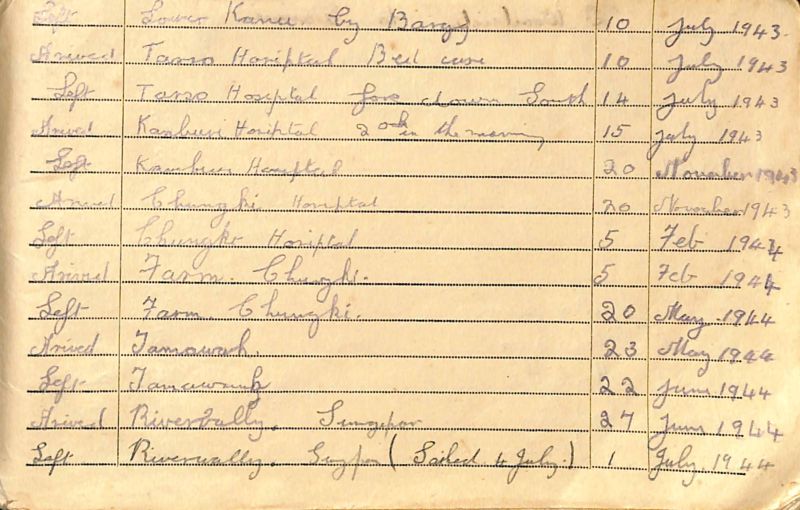 Left Lower Kanu by Barge 10 July 1943
Arived Tarso Horiptal Bed case 10 July 1943
Left Tarso Hosptal for down South 14 July 1943
Arived Kanburi Horiptal 2 ock in the morning 15 July 1943
Left Kanburi Hosptal 20 November 1943
Arived Chungki Horiptal 20 November 1943
Left Chungki Horiptal 5 Feb 1944
Arived Farm. Chungki. 5 Feb 1944
Left Farm Chungki. 20 May 1944
Arived Tamawah. 23 May 1944
Left 22 June 1944
Arived Rivervally. Singapor 27 June 1944
Left Rivervally. (Sailed 4 July.) 1 July 1944